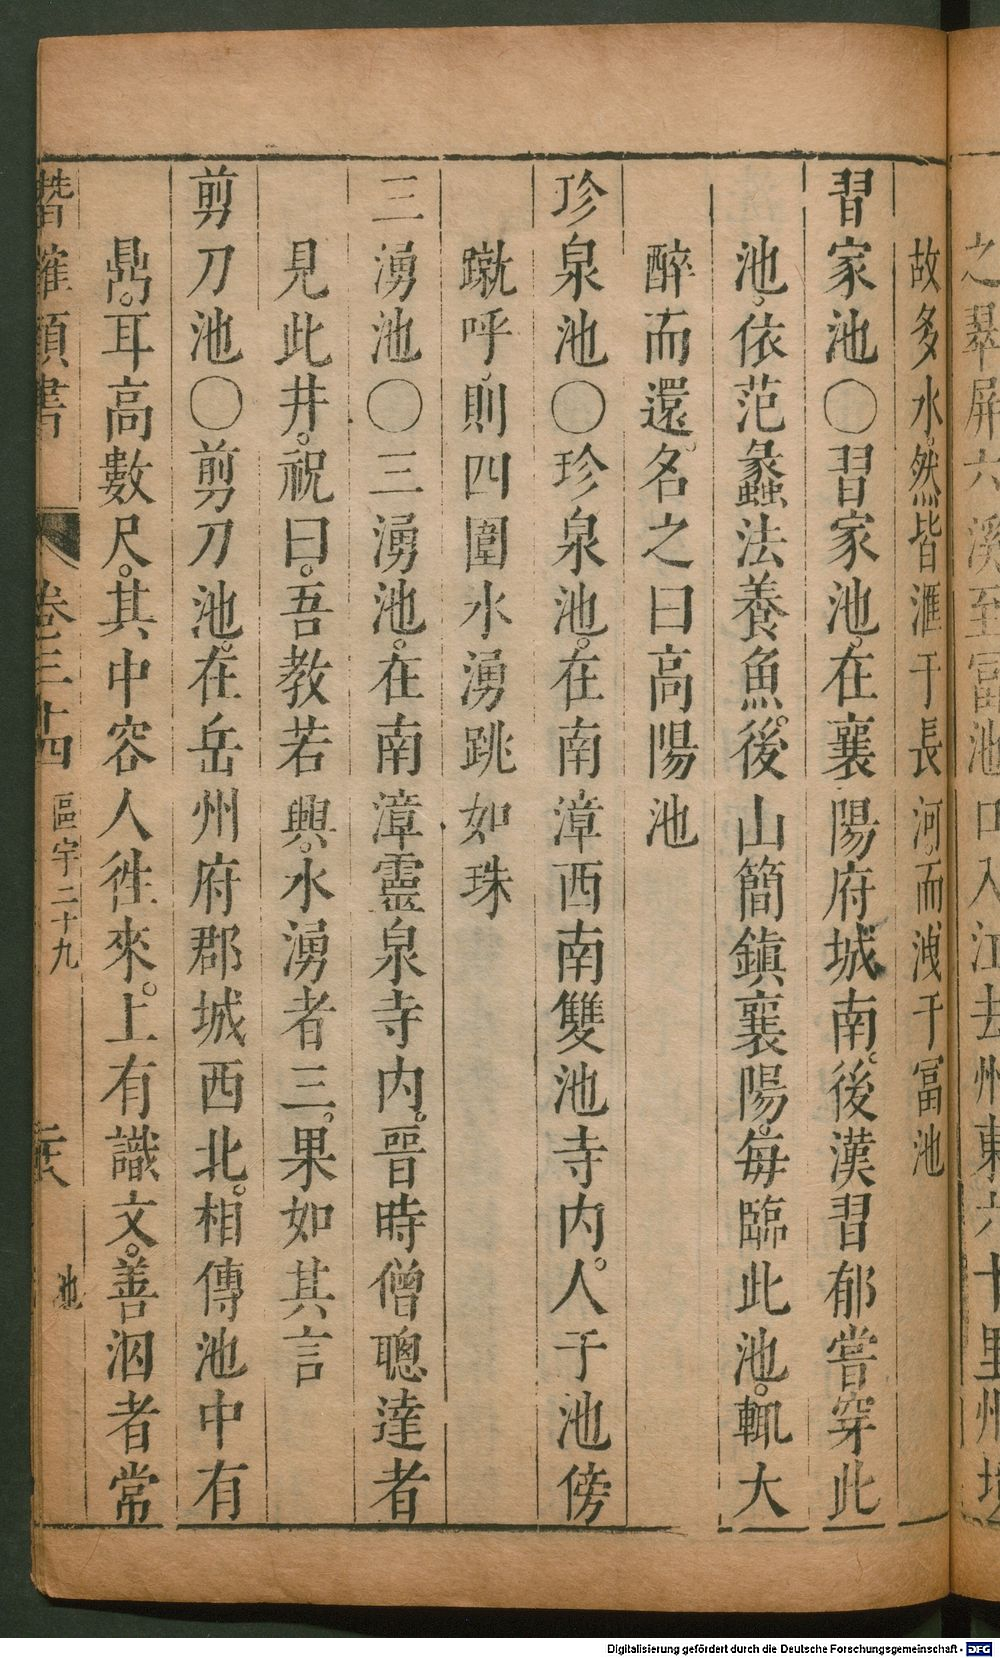 之翠屏六溪至冨池口入江去州東六十里州地
故多水。然皆滙于長河。而洩于冨池
習家池○習家池。在襄陽府城南。後漢習郁嘗穿此
池。依范蠡法養魚。後山簡鎮襄陽。每臨此池。輒大
醉而還。名之曰高陽池
珍泉池○珍泉池。在南漳西南雙池寺内。人于池傍
蹴呼。則四圍水湧跳如珠
三湧池○三湧池。在南漳靈泉寺内。晉時僧聰達者
見此井。祝曰。吾教若興。水湧者三。果如其言
剪刀池○剪刀池。在岳州府郡城西北。相傳池中有
鼎。耳高數尺。其中容人徃來。上有識文。善泅者常
潛確類書 卷三十四 區宇二十九 池
Digitalisierung gefördert durch die Deutsche Forschungsgemeinschaft - DFG